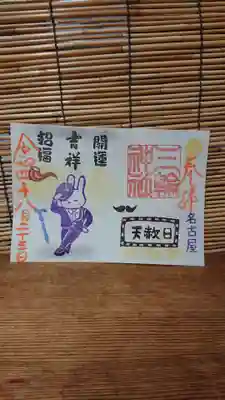 奉拝
名古屋
三輪神社
天赦日
開運
吉祥
招福
令和四年八月二十三日